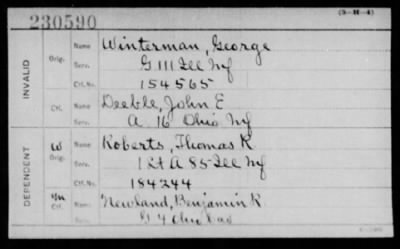 (3-H-4)
230590
INVALID
Orig.
Name Winterman, George
Serv. G 111 Ill Inf
Ctf. No. 154565
Ctf.
Name Deeble, John E
Serv. A 16 Ohio Inf
DEPENDENT
W
Orig.
Name Roberts, Thomas K
Serv. A 85 Ill Inf
Ctf. No. 184244
Ctf.
Name Newland, Benjamin K
Serv. 4 Ohio Cav